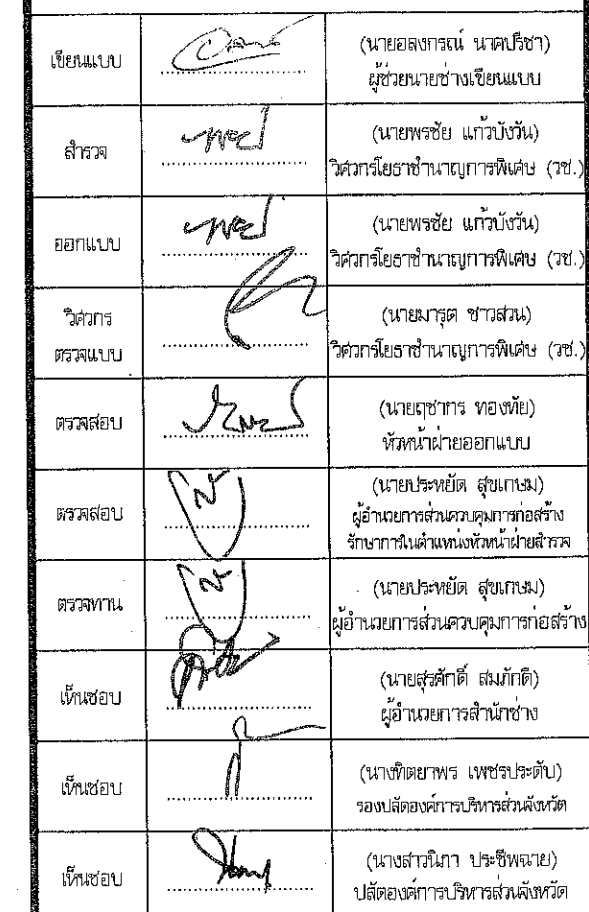 เขียนแบบ
(นายอลงกรณ์ นาคปรีชา)
ผู้ช่วยนายช่างเขียนแบบ
สำรวจ
(นายพรชัย แก้วบังวัน)
วิศวกรโยธาชำนาญการพิเศษ (วช.)
ออกแบบ
(นายพรชัย แก้วบังวัน)
วิศวกรโยธาชำนาญการพิเศษ (วช.)
วิศวกร
ตรวจแบบ
(นายมารุต ชาวส่วน)
วิศวกรโยธาชำนาญการพิเศษ (วช.)
ตรวจสอบ
(นายฤชากร ทองทัย)
หัวหน้าฝ่ายออกแบบ
ตรวจสอบ
(นายประหยัด สุขเกษม)
ผู้อำนวยการส่วนควบคุมการก่อสร้าง
รักษาการในตำแหน่งหัวหน้าฝ่ายสำรวจ
ตรวจทาน
(นายประหยัด สุขเกษม)
ผู้อำนวยการส่วนควบคุมการก่อสร้าง
เห็นชอบ
(นายสุรศักดิ์ สมภักดี)
ผู้อำนวยการสำนักช่าง
เห็นชอบ
(นางทิตยาพร เพชรประดับ)
รองปลัดองค์การบริหารส่วนจังหวัด
เห็นชอบ
(นางสาวนิภา ประชีพฉาย)
ปลัดองค์การบริหารส่วนจังหวัด